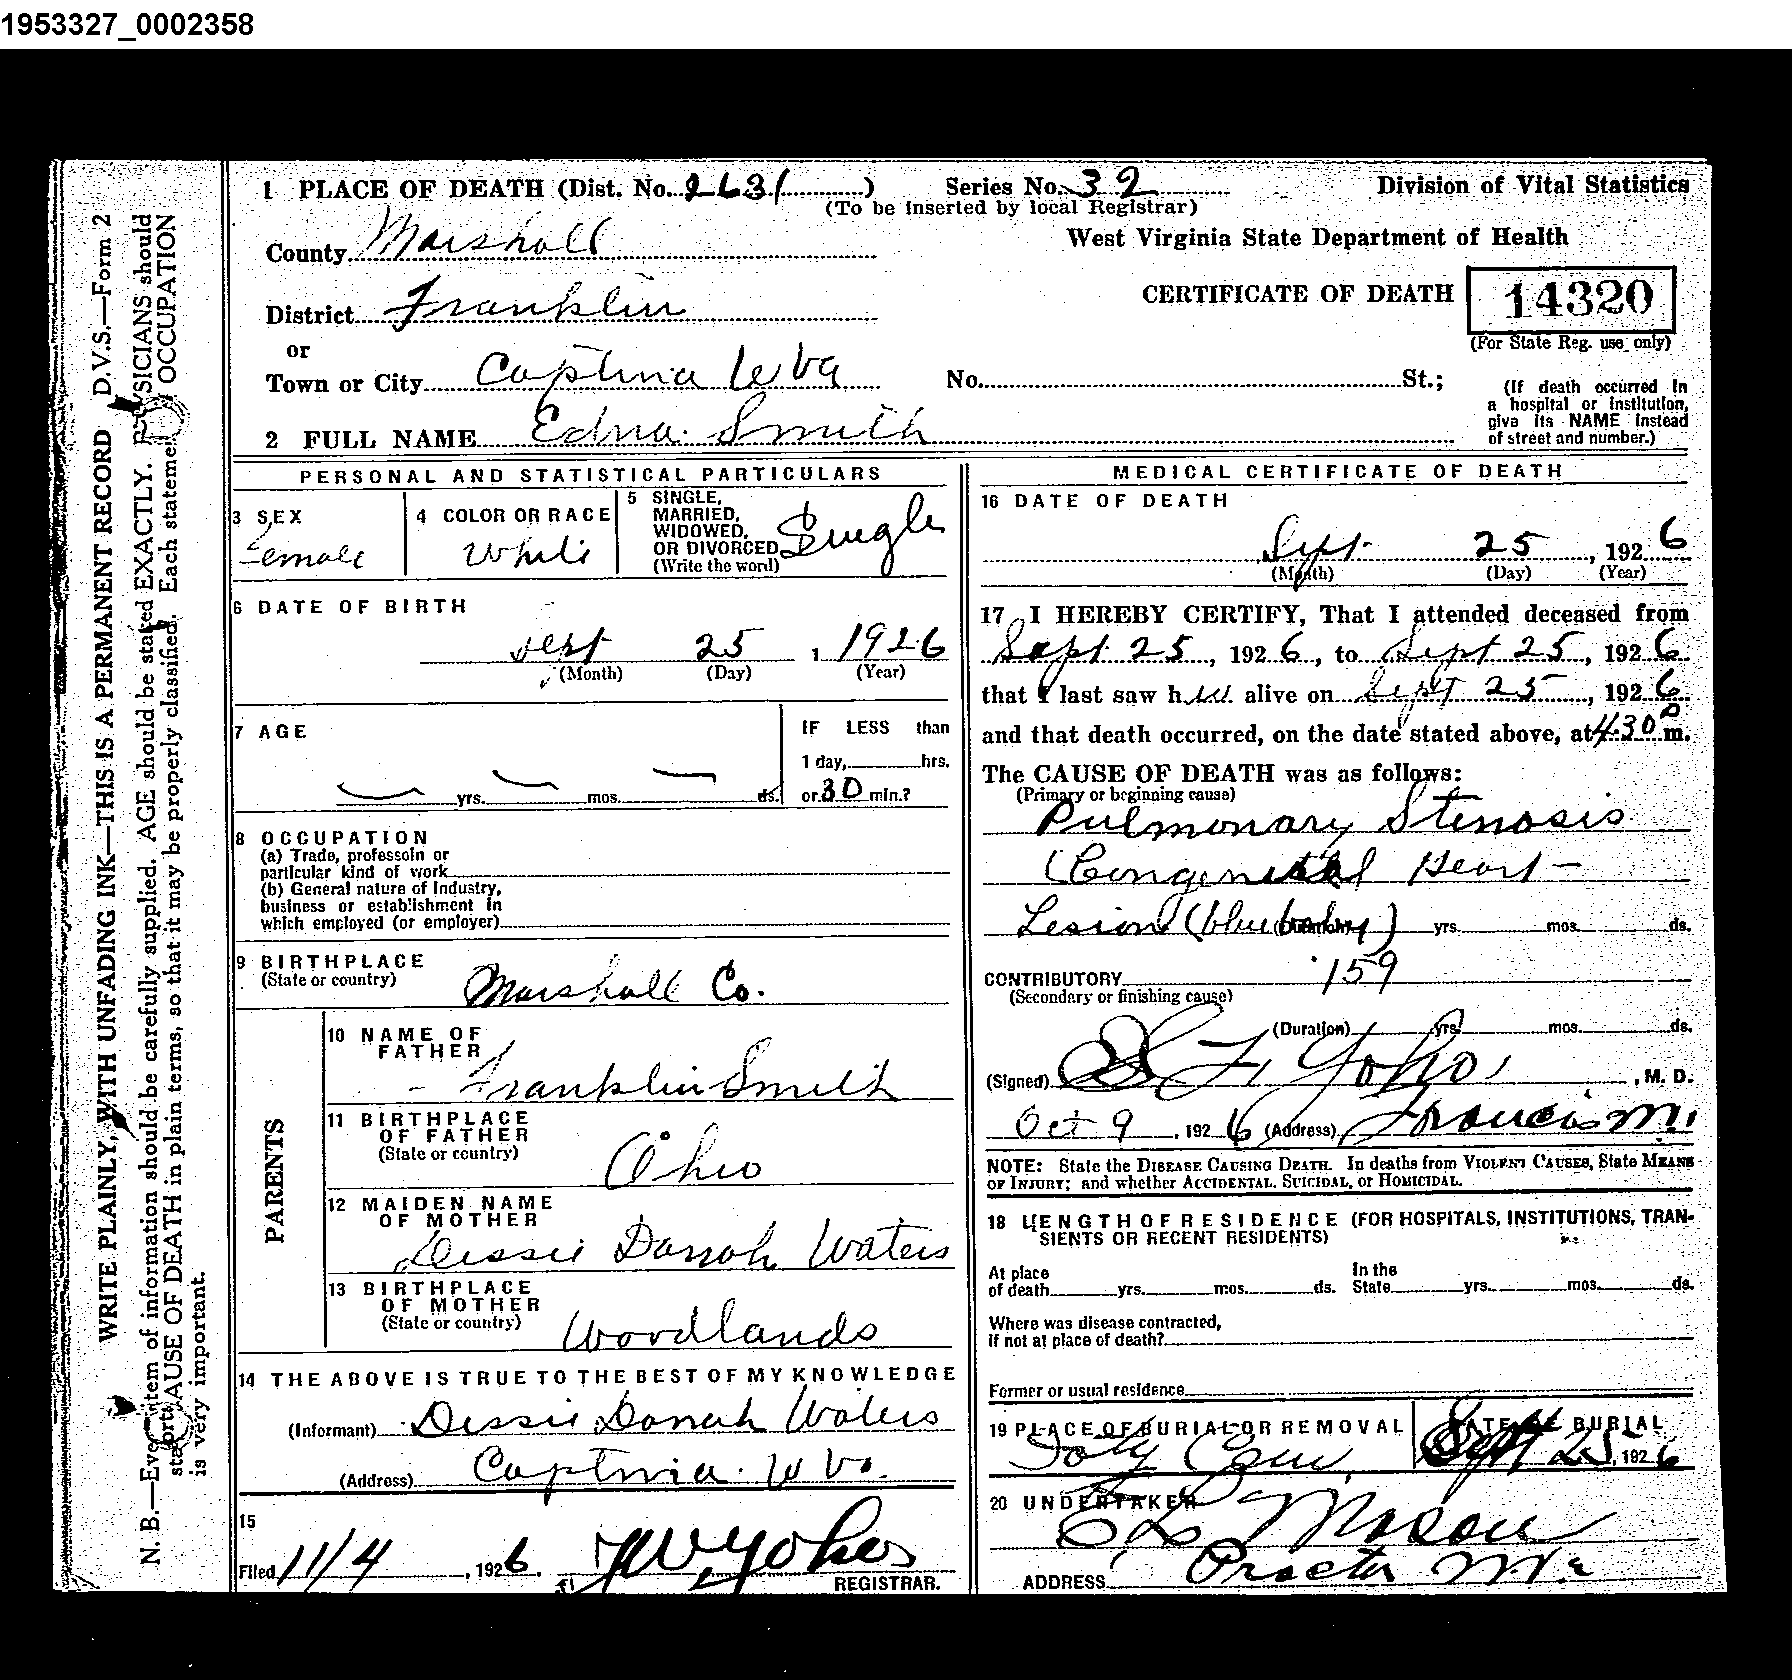 1953327_0002358
1 PLACE OF DEATH (Dist. No. 2631) Series No. 39 Division of Vital Statistics
(To be inserted by local Registrar)
County Marshall West Virginia State Department of Health
District Franklin CERTIFICATE OF DEATH 14320
or (For State Reg. use only)
Town or City Captina W Va No. St.; (If death occurred in a hospital or institution, give its NAME instead of street and number.)
2 FULL NAME Edna Smith
PERSONAL AND STATISTICAL PARTICULARS
3 SEX Female
4 COLOR OR RACE White
5 SINGLE, MARRIED, WIDOWED, OR DIVORCED (Write the word) Single
6 DATE OF BIRTH
Sept 25, 1926
(Month) (Day) (Year)
7 AGE
yrs. mos. ds.
IF LESS than
1 day, hrs.
or 30 min.?
8 OCCUPATION
(a) Trade, professoin or
particular kind of work
(b) General nature of industry,
business or establishment in
which employed (or employer)
9 BIRTHPLACE
(State or country) Marshall Co.
PARENTS
10 NAME OF
FATHER
Franklin Smith
11 BIRTHPLACE
OF FATHER
(State or country) Ohio
12 MAIDEN NAME
OF MOTHER
Dessie Darrah Waters
13 BIRTHPLACE
OF MOTHER
(State or country) Woodlands
14 THE ABOVE IS TRUE TO THE BEST OF MY KNOWLEDGE
(Informant) Dessie Darrah Waters
(Address) Captina W Va.
15
Filed 11/4, 1926. Yoho
REGISTRAR.
MEDICAL CERTIFICATE OF DEATH
16 DATE OF DEATH
Sept. 25, 1926
(Month) (Day) (Year)
17 I HEREBY CERTIFY, That I attended deceased from
Sept 25, 1926, to Sept 25, 1926
that I last saw her alive on Sept 25, 1926
and that death occurred, on the date stated above, at 4.30 m.
The CAUSE OF DEATH was as follows:
(Primary or beginning cause)
Pulmonary Stenosis
Congenital Heart -
Lesion (blue baby) (Duration) yrs. mos. ds.
CONTRIBUTORY 159
(Secondary or finishing cause)
(Duration) yrs. mos. ds.
(Signed) S F Yoho, M. D.
Oct 9, 1926 (Address)
NOTE: State the DISEASE CAUSING DEATH. In deaths from VIOLENT CAUSES, State MEANS
OF INJURY; and whether ACCIDENTAL, SUICIDAL, or HOMICIDAL.
18 LENGTH OF RESIDENCE (FOR HOSPITALS, INSTITUTIONS, TRAN-
SIENTS OR RECENT RESIDENTS)
At place
of death yrs. mos. ds. In the State yrs. mos. ds.
Where was disease contracted,
if not at place of death?
Former or usual residence
19 PLACE OF BURIAL OR REMOVAL
Cem.
DATE OF BURIAL
Sept 25, 1926
20 UNDERTAKER
Mason
ADDRESS Procter
WRITE PLAINLY, WITH UNFADING INK—THIS IS A PERMANENT RECORD D.V.S.—Form 2
N. B.—Every item of information should be carefully supplied. AGE should be stated EXACTLY. PHYSICIANS should
state CAUSE OF DEATH in plain terms, so that it may be properly classified. Each statement OCCUPATION
is very important.